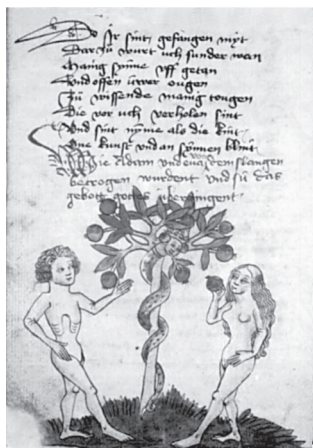 ir sint gefangen myt
Dar zü wurt uch sunder wan
Manig synne uff getan
Und offen uwer ougen
Zü wissende manig tougen
Die vor uch verholen sint
Und sint nyme als die kint
One kunst und an synnen blint
Wie Adam und eua von dem slangen
betrogen wurdent und sü das
gebott gottes übergingent